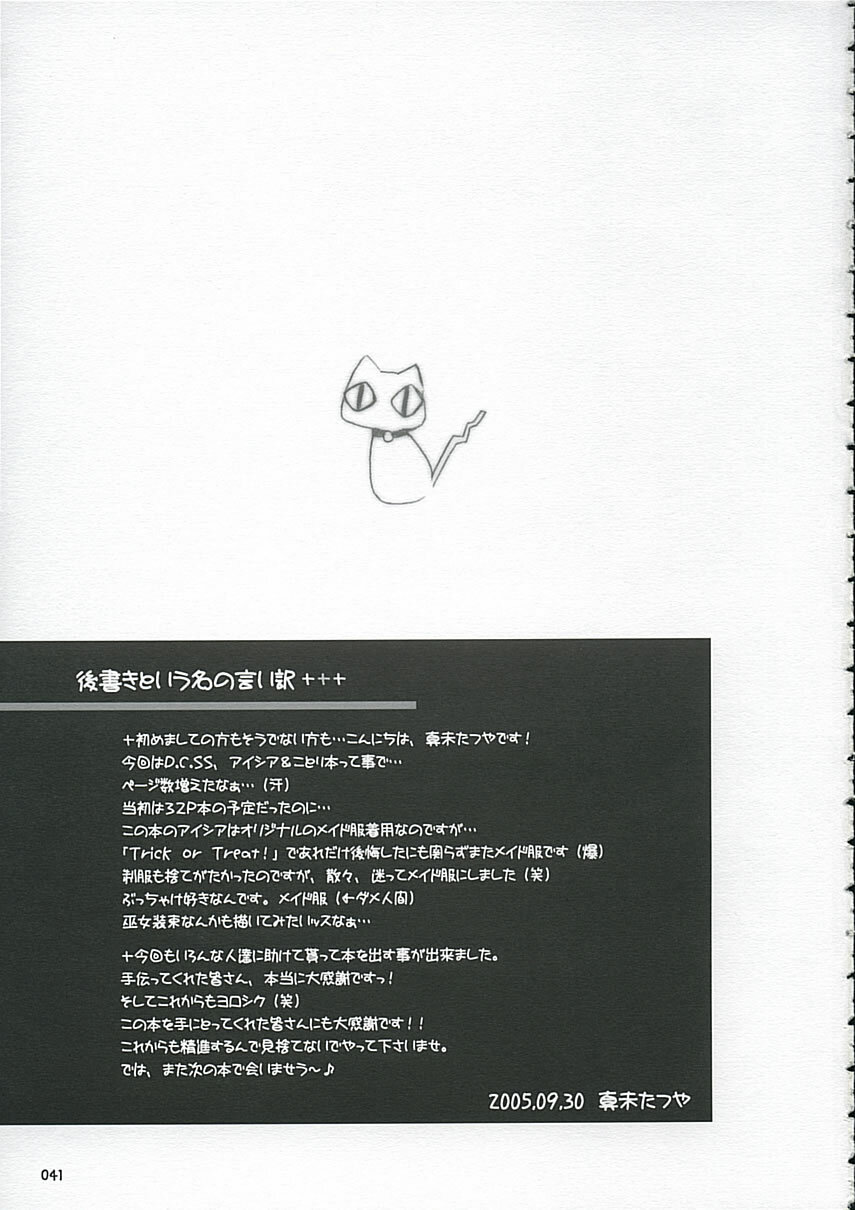 後書きという名の言い訳+++
+初めましての方もそうでない方も…こんにちは、真未たつやです!
今回はD.C.SS、アイシア&ことり本って事で…
ページ数増えたなぁ…(汗)
当初は32P本の予定だったのに…
この本のアイシアはオリジナルのメイド服着用なのですが…
「Trick or Treat!」であれだけ後悔したにも関らずまたメイド服です(爆)
制服も捨てがたかったのですが、散々、迷ってメイド服にしました(笑)
ぶっちゃけ好きなんです。メイド服(←ダメ人間)
巫女装束なんかも描いてみたいッスなぁ…
+今回もいろんな人達に助けて貰って本を出す事が出来ました。
手伝ってくれた皆さん、本当に大感謝ですっ!
そしてこれからもヨロシク(笑)
この本を手にとってくれた皆さんにも大感謝です!!
これからも精進するんで見捨てないでやって下さいませ。
では、また次の本で会いませう~♪
2005.09.30 真未たつや
041